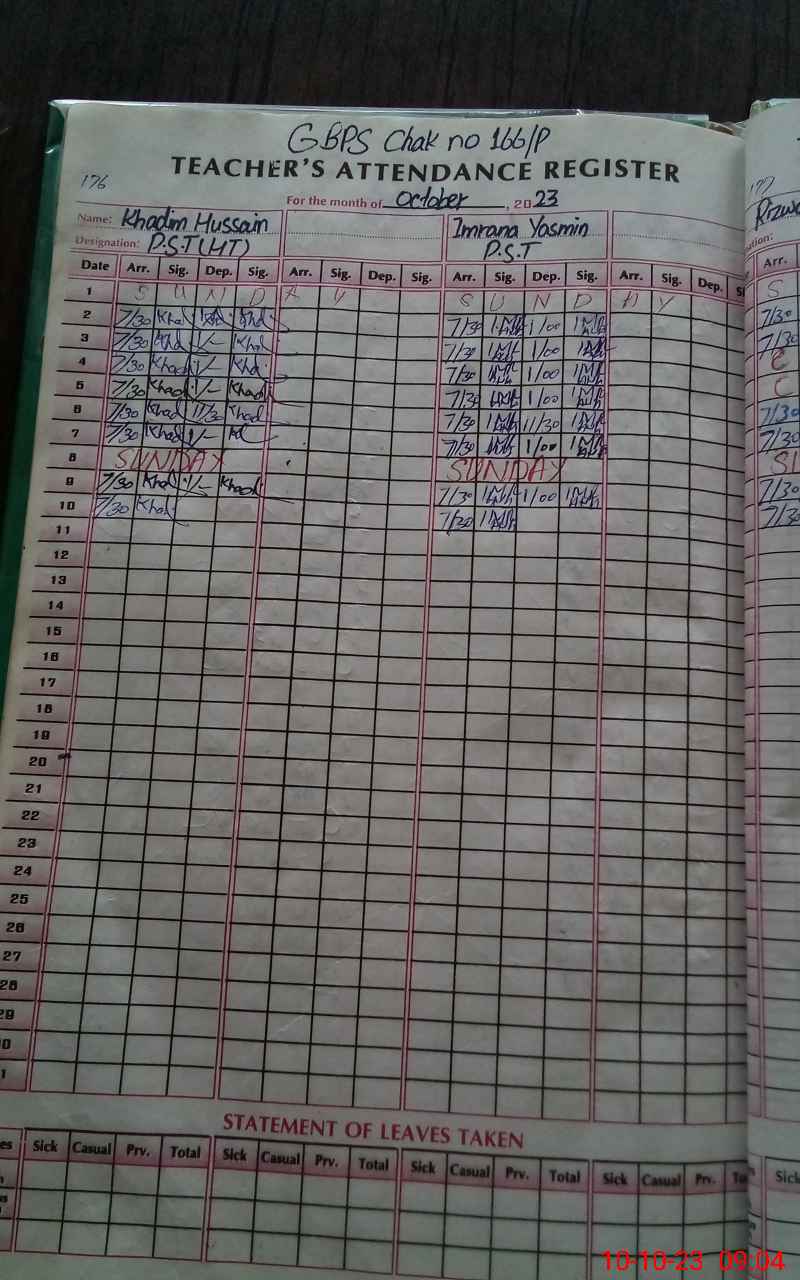 GBPS Chak no 166/P
TEACHER'S ATTENDANCE REGISTER
176 177
For the month of October, 2023
Name: Khadim Hussain Imrana Yasmin
Designation: P.S.T (HT) P.S.T
Date Arr. Sig. Dep. Sig. Arr. Sig. Dep. Sig. Arr. Sig. Dep. Sig. Arr. Sig. Dep. Arr.
1 S U N D A Y S U N D A Y S
2 7/30 Khad 7/30 1/00 7/30
3 7/30 Khad 1/- Khad 7/30 1/00 7/30
4 7/30 Khad 1/- Khad 7/30 1/00
5 7/30 Khad 1/- Khad 7/30 1/00
6 7/30 Khad 11/30 Khad 7/30 11/30 7/30
7 7/30 Khad 1/- 7/30 1/00 7/30
8 SUNDAY SUNDAY
9 7/30 Khad 1/- Khad 7/30 1/00 7/30
10 7/30 Khad 7/30
11
12
13
14
15
16
17
18
19
20
21
22
23
24
25
26
27
28
29
STATEMENT OF LEAVES TAKEN
Sick Casual Prv. Total Sick Casual Prv. Total Sick Casual Prv. Total Sick Casual Prv. Sick
10-10-23 09:04